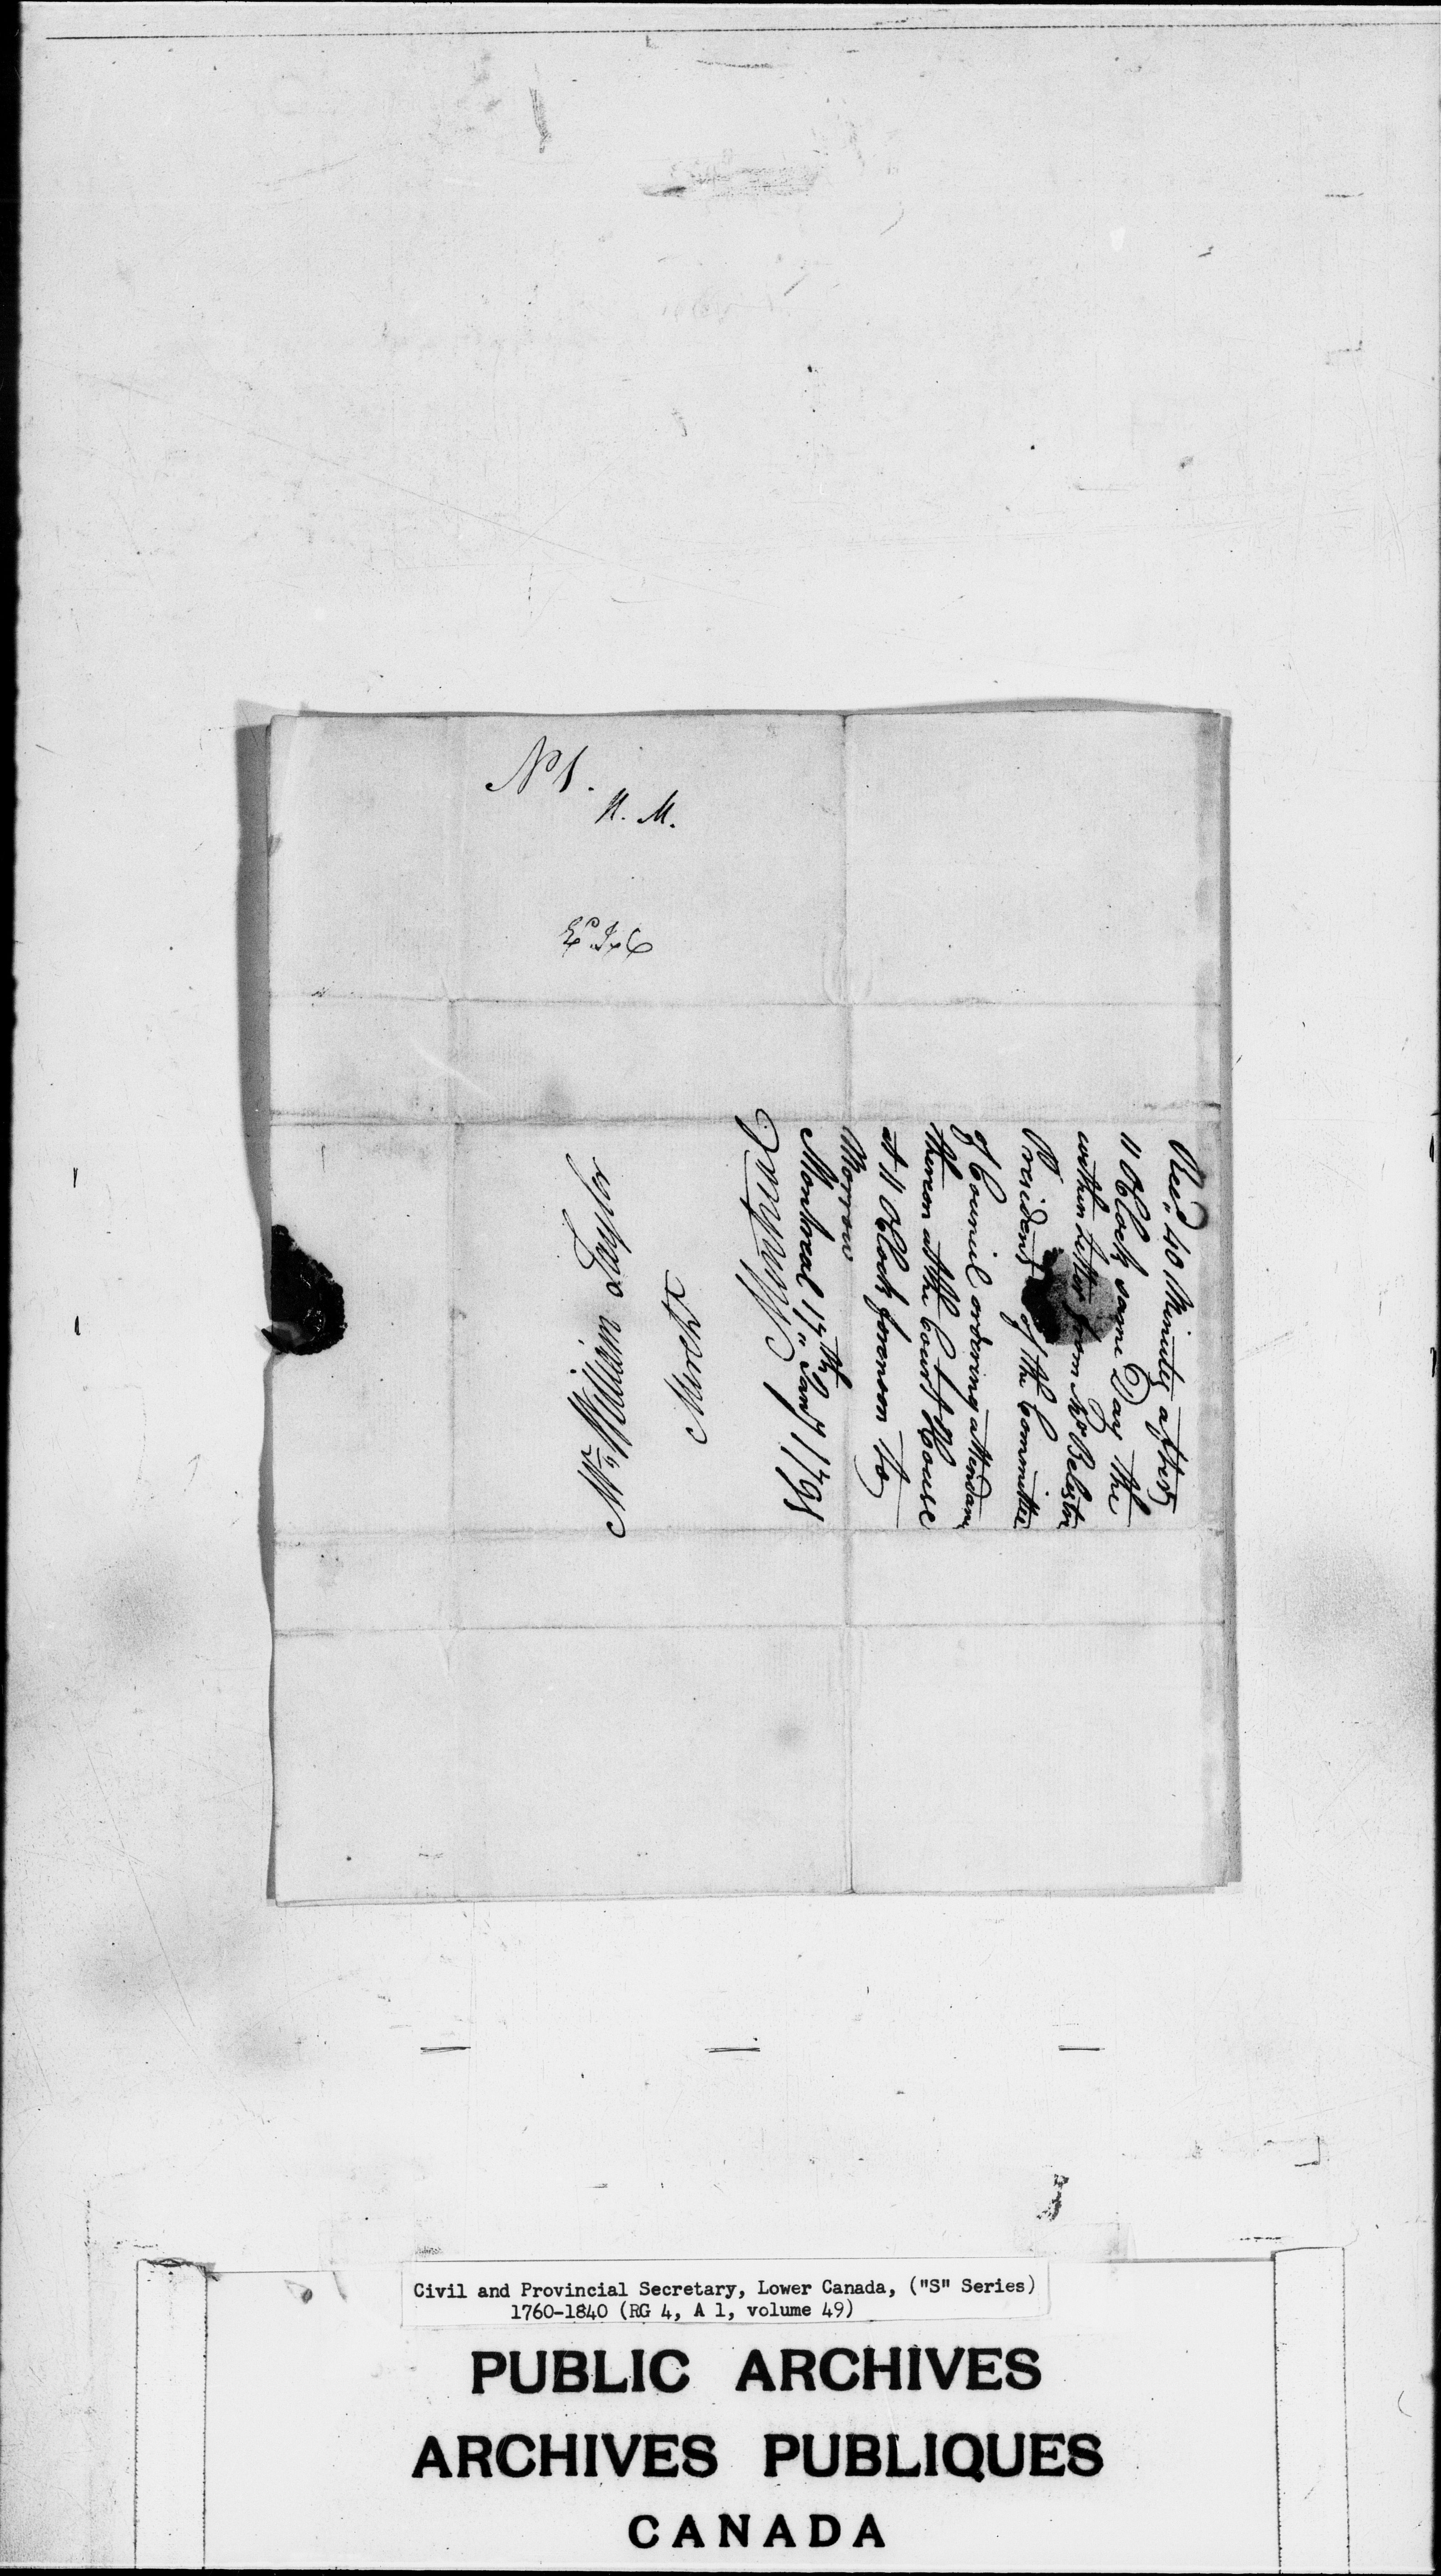 No 1.
N. M.
Recd. 40 Minutes after
11 OClock same Day the
within Letter from Mr Belestre
President of the Committee
of Council ordering attendance
thereon at the Court House
at 11 OClock forenoon to
Morrow
Montreal 17th Jany 1791
Jonathan
Mr. William Taylor
Merct
Civil and Provincial Secretary, Lower Canada, ("S" Series)
1760-1840 (RG 4, A 1, volume 49)
PUBLIC ARCHIVES
ARCHIVES PUBLIQUES
CANADA